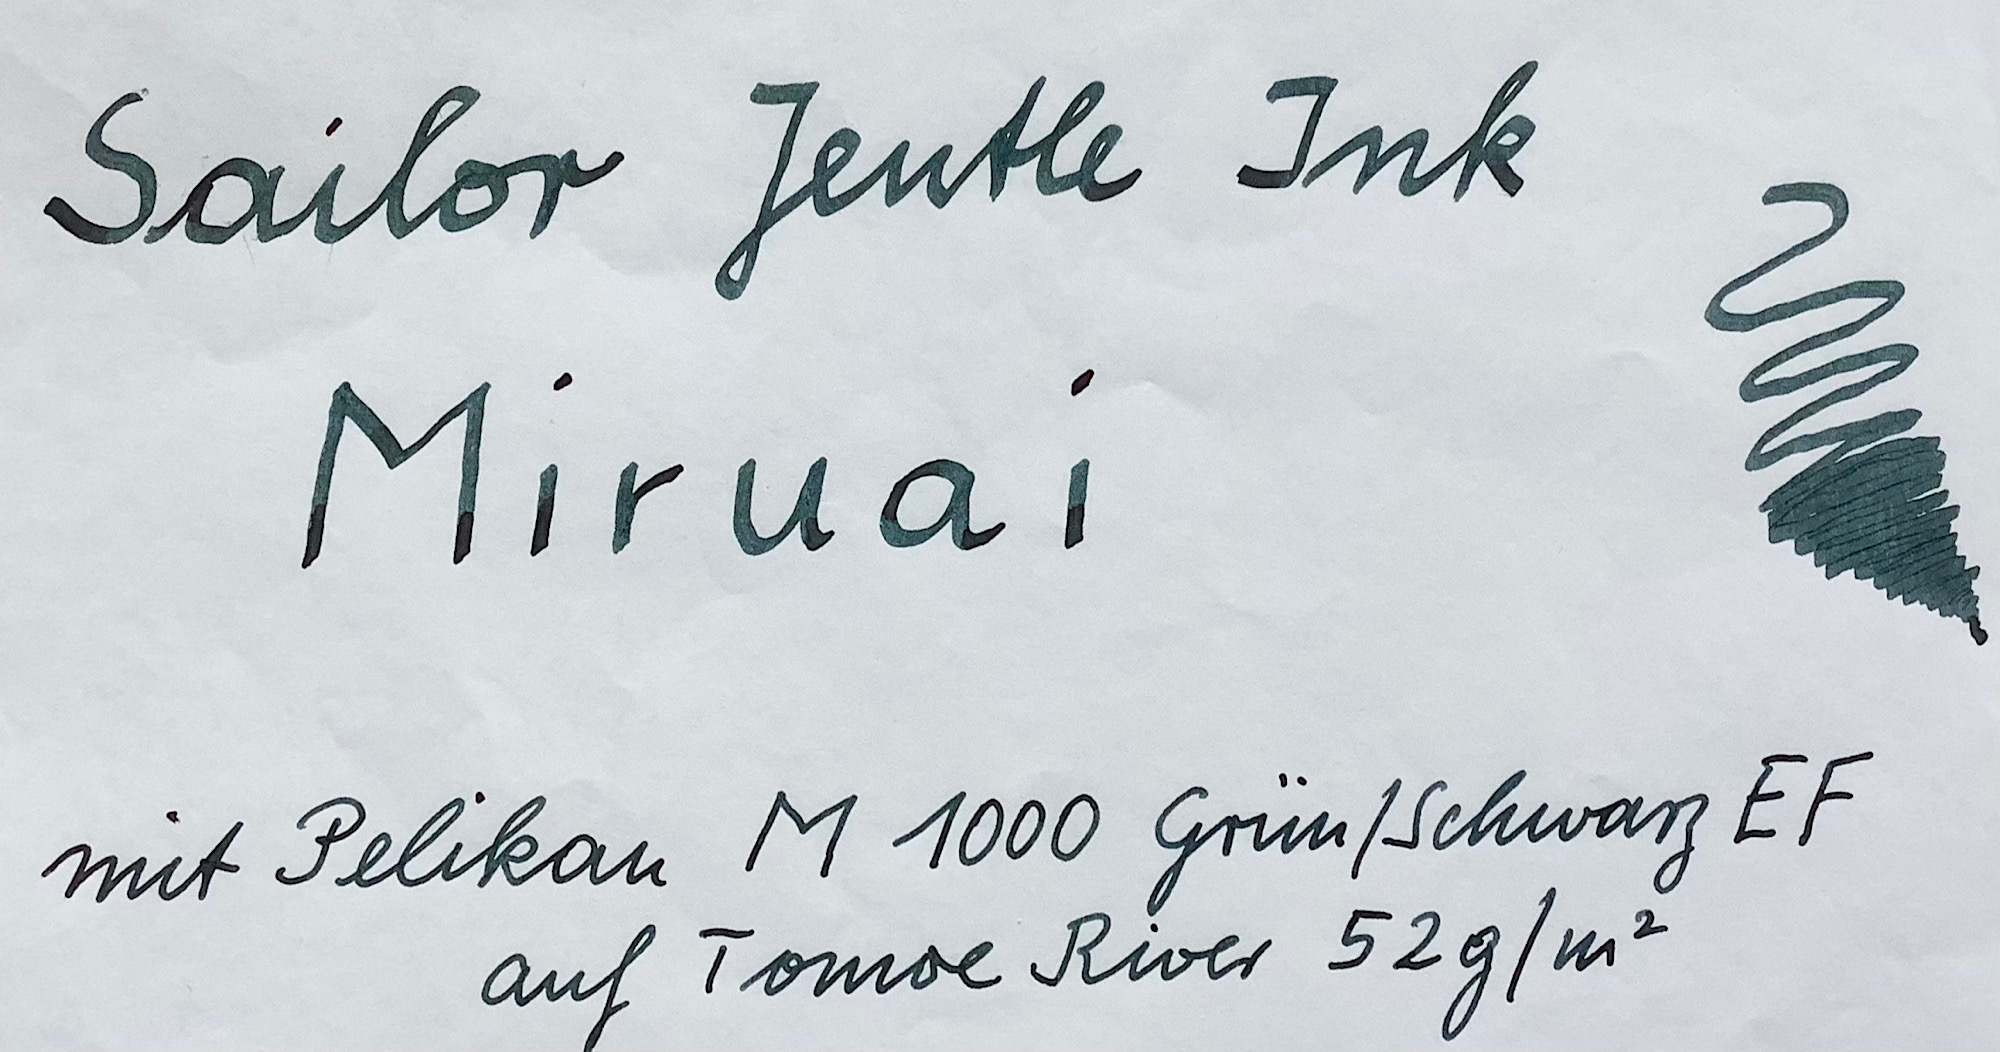 Sailor Jentle Ink
Miruai
mit Pelikan M 1000 Grün/Schwarz EF
auf Tomoe River 52g/m²